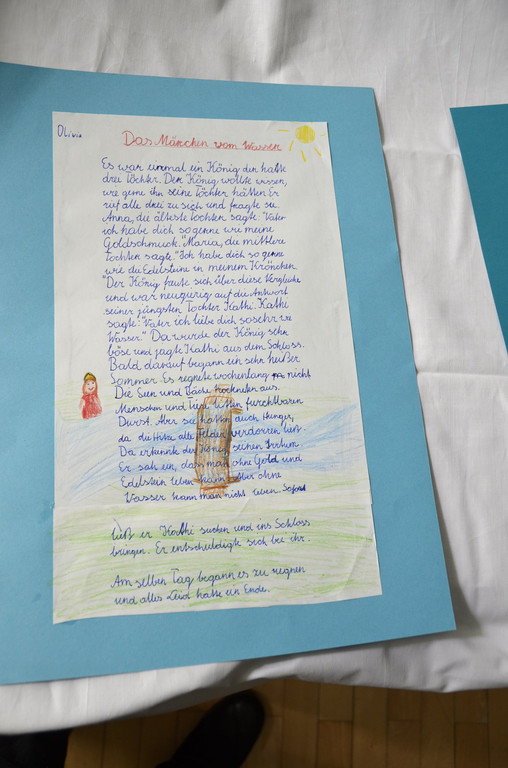 Olivia
Das Märchen vom Wasser
Es war einmal ein König der hatte
drei Töchter. Der König wollte wissen,
wie gerne ihn seine Töchter hätten. Er
rief alle drei zu sich und fragte sie.
Anna, die älteste Tochter sagte: "Vater
ich habe dich so gerne wie meine
Goldschmuck." Maria, die mittlere
Tochter sagte: "Ich habe dich so gerne
wie die Edelsteine in meinem Krönchen.
"Der König freute sich über diese Vergleiche
und war neugierig auf die Antwort
seiner jüngsten Tochter Kathi. Kathi
sagte: "Vater ich liebe dich so sehr wie
Wasser." Da wurde der König sehr
böse und jagte Kathi aus dem Schloss.
Bald darauf begann ein sehr heißer
Sommer. Es regnete wochenlang nicht
Die Seen und Bäche trockneten aus.
Menschen und Tiere litten furchtbaren
Durst. Aber sie hatten auch Hunger,
da die Hitze alle Felder verdorren ließ.
Da erkannte der König seinen Irrtum.
Er sah ein, dass man ohne Gold und
Edelstein leben kann. Aber ohne
Wasser kann man nicht leben. Sofort
ließ er Kathi suchen und ins Schloss
bringen. Er entschuldigte sich bei ihr.
Am selben Tag begann es zu regnen
und alles Leid hatte ein Ende.